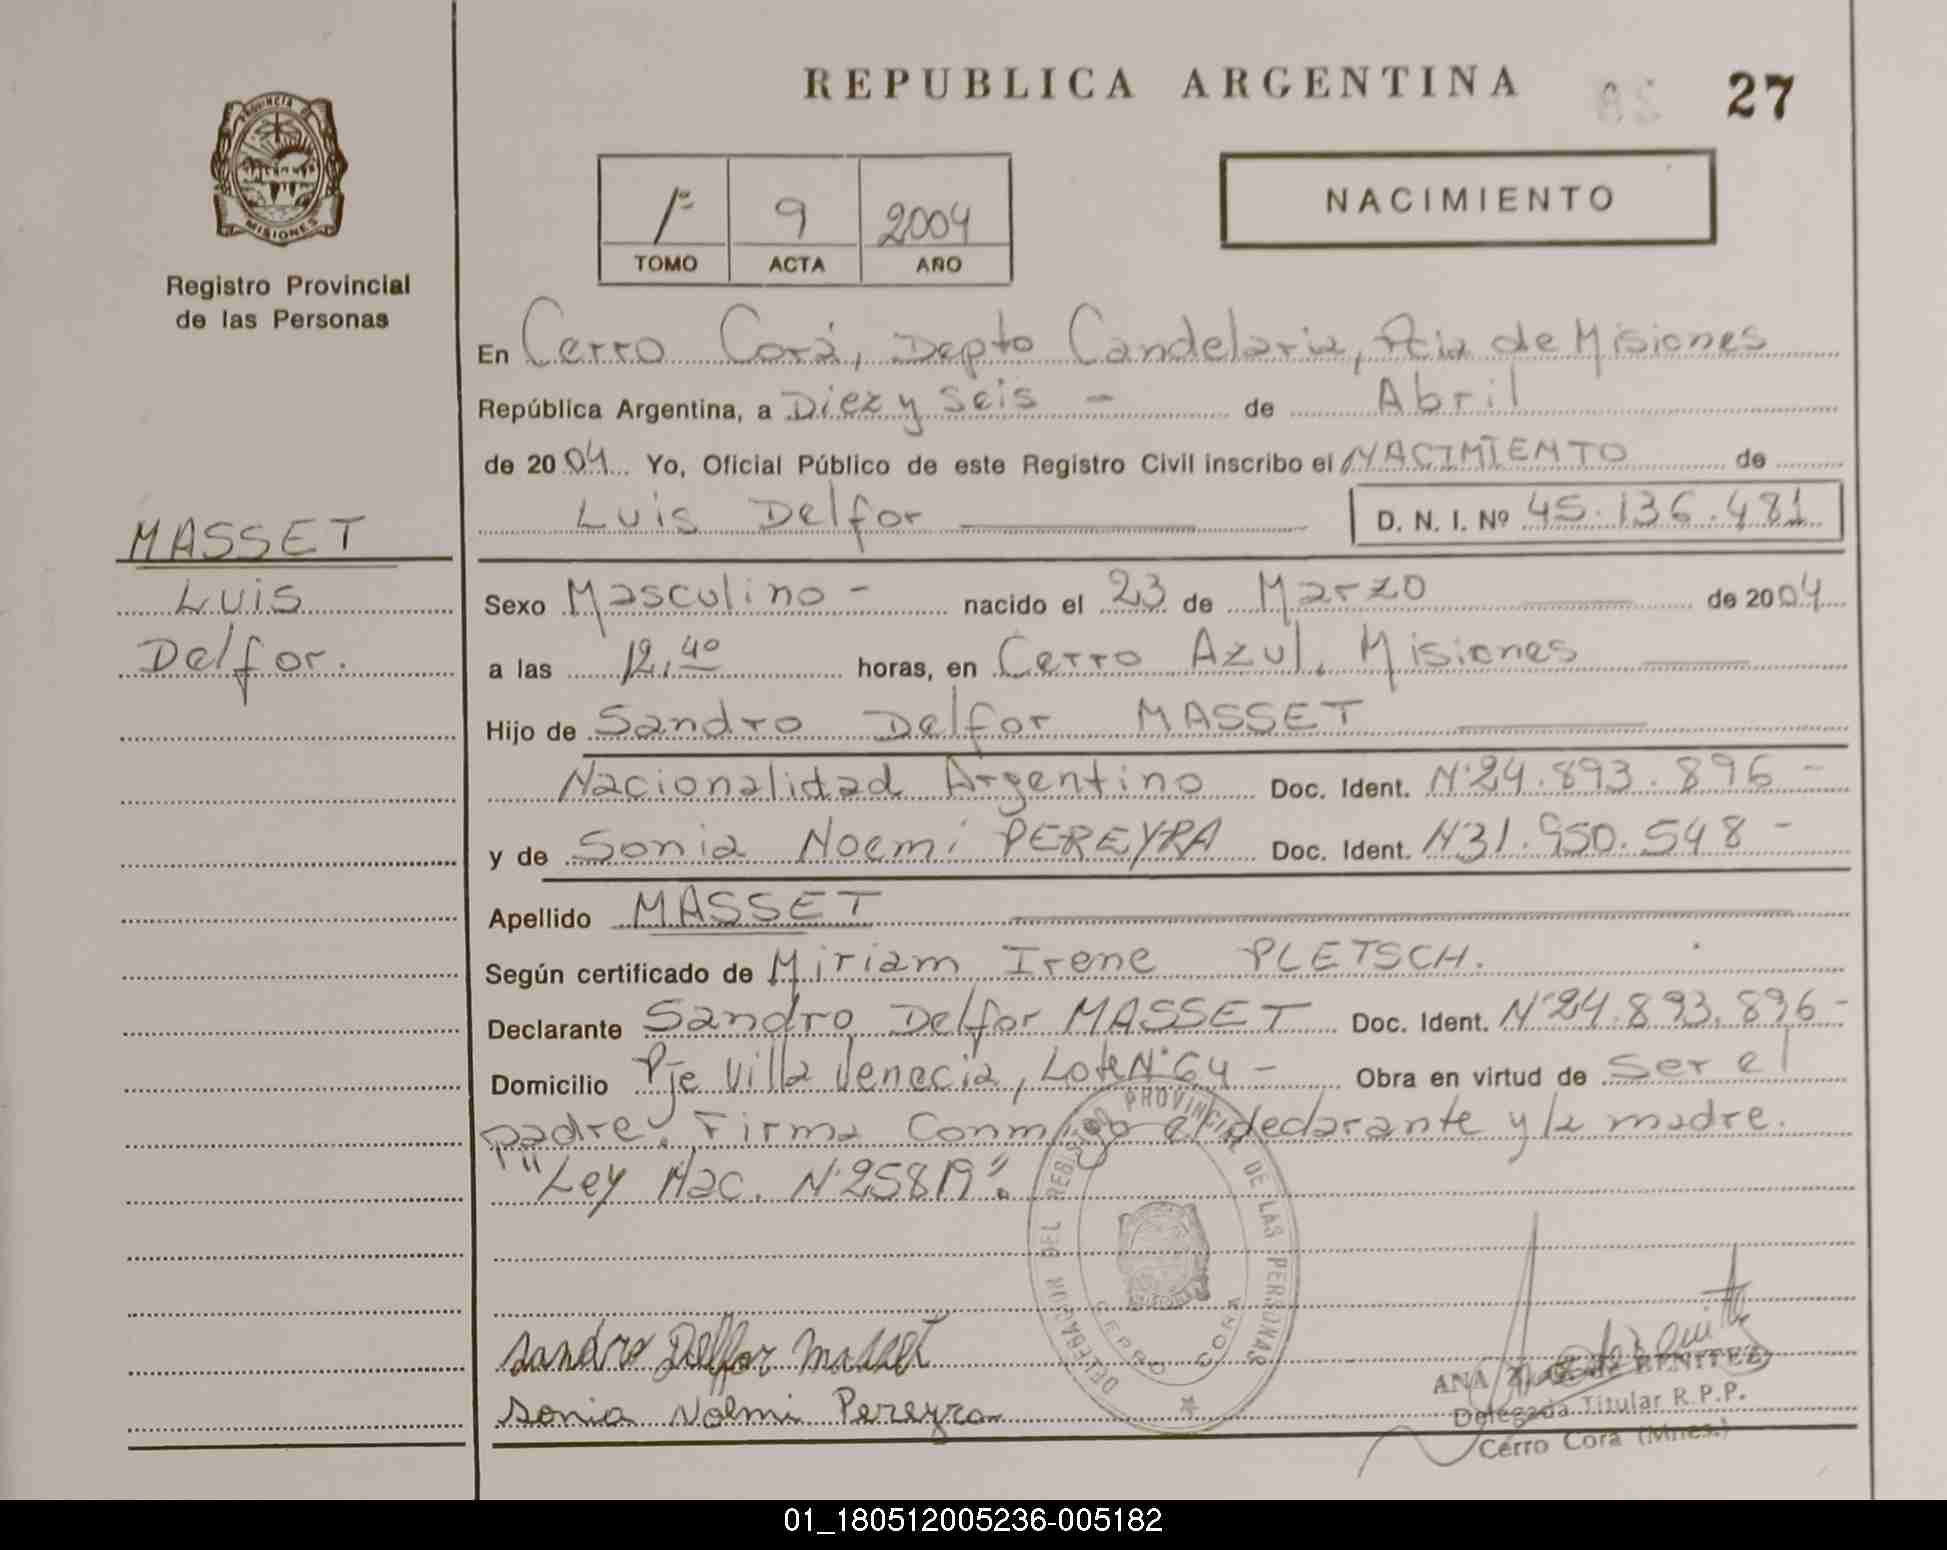 REPUBLICA ARGENTINA
85 27
PROVINCIA DE
MISIONES
Registro Provincial
de las Personas
1º 9 2004
TOMO ACTA AÑO
NACIMIENTO
En Cerro Corá, Depto Candelaria, Pcia de Misiones
República Argentina, a Diez y seis - de Abril
de 2004 Yo, Oficial Público de este Registro Civil inscribo el NACIMIENTO de
Luis Delfor
D. N. I. Nº 45.136.481
MASSET
Luis
Delfor.
Sexo Masculino - nacido el 23 de Marzo de 2004
a las 12,40 horas, en Cerro Azul, Misiones
Hijo de Sandro Delfor MASSET
Nacionalidad Argentino Doc. Ident. Nº24.893.896 -
y de Sonia Noemi PEREYRA Doc. Ident. N31.950.548 -
Apellido MASSET
Según certificado de Miriam Irene PLETSCH.
Declarante Sandro Delfor MASSET Doc. Ident. Nº24.893.896 -
Domicilio Pje Villa Venecia, Lote Nº 64 - Obra en virtud de ser el
padre. Firma Conmigo el declarante y la madre.
"Ley Nac. Nº25819".
DELEGACION DEL REGISTRO PROVINCIAL DE LAS PERSONAS
CERRO CORA
Sandro Delfor Masset
Sonia Noemi Pereyra
ANA de BENITEZ
Delegada Titular R.P.P.
Cerro Corá (Mnes.)
01_180512005236-005182